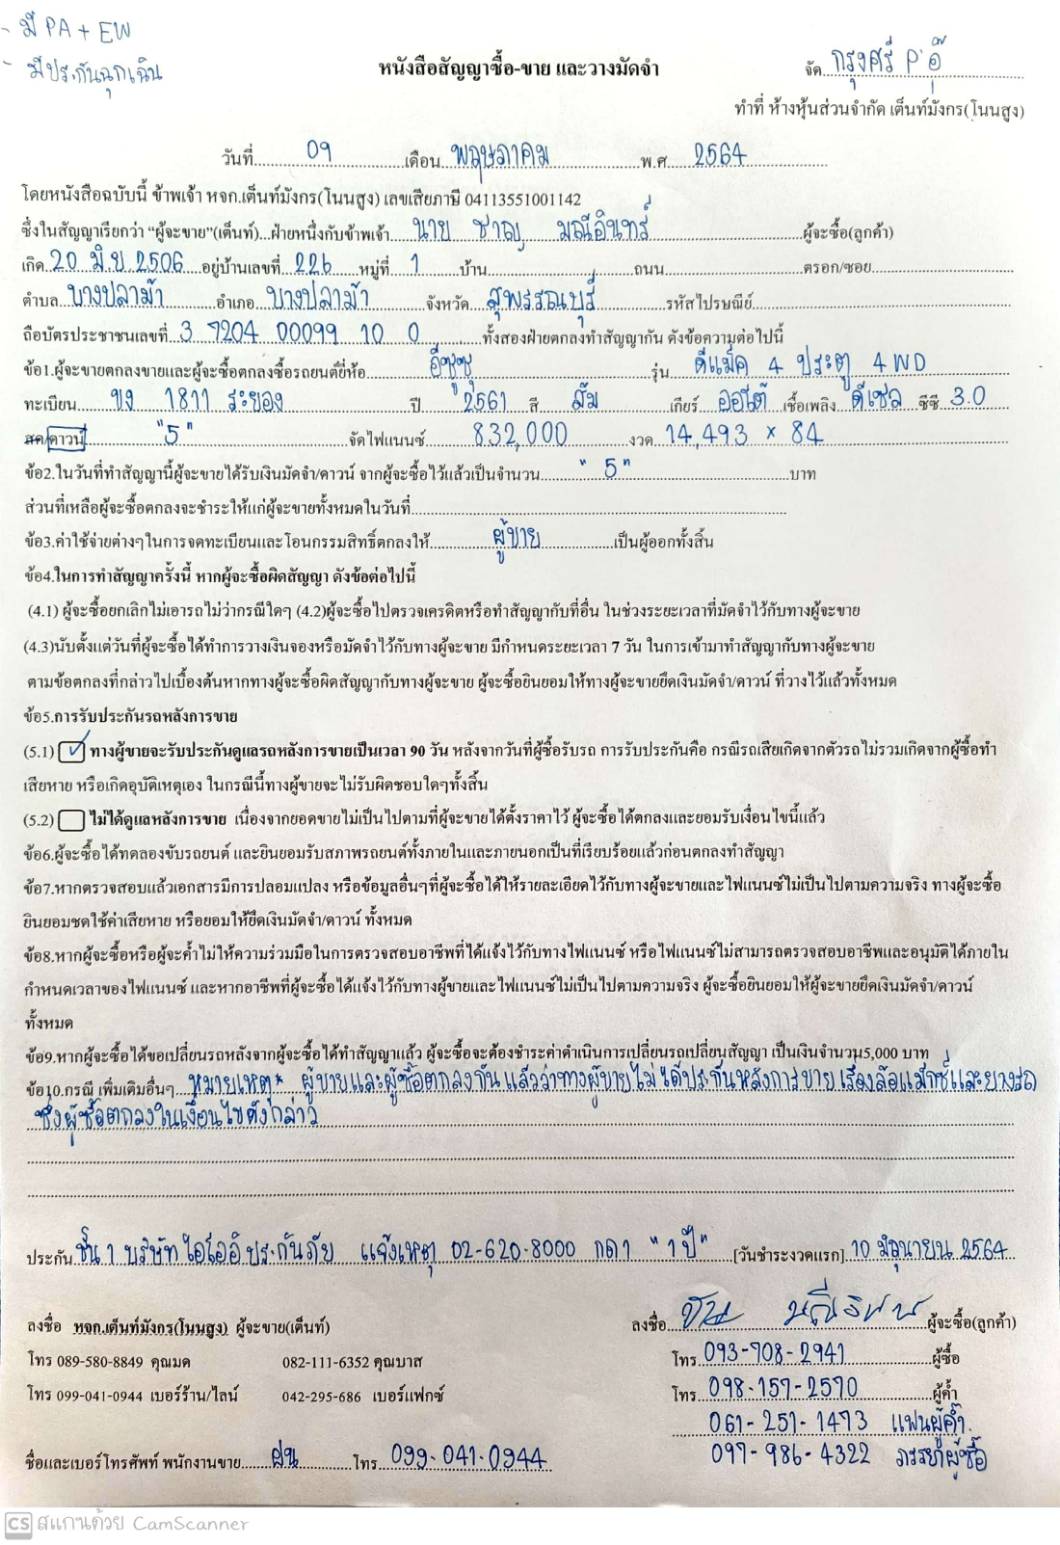 - มี PA + EW
- มีประกันฉุกเฉิน
หนังสือสัญญาซื้อ-ขาย และวางมัดจำ
จัด กรุงศรี P'อุ๊
ทำที่ ห้างหุ้นส่วนจำกัด เต็นท์มังกร(โนนสูง)
วันที่ 09 เดือน พฤษภาคม พ.ศ 2564
โดยหนังสือฉบับนี้ ข้าพเจ้า หจก.เต็นท์มังกร(โนนสูง) เลขเสียภาษี 04113551001142
ซึ่งในสัญญาเรียกว่า "ผู้จะขาย"(เต็นท์)...ฝ่ายหนึ่งกับข้าพเจ้า นาย ชาญ มณีอินทร์ ผู้จะซื้อ(ลูกค้า)
เกิด 20 มิ.ย 2506 อยู่บ้านเลขที่ 226 หมู่ที่ 1 บ้าน ถนน ตรอก/ซอย
ตำบล บางปลาม้า อำเภอ บางปลาม้า จังหวัด สุพรรณบุรี รหัสไปรษณีย์
ถือบัตรประชาชนเลขที่ 3 7204 00099 10 0 ทั้งสองฝ่ายตกลงทำสัญญากัน ดังข้อความต่อไปนี้
ข้อ1.ผู้จะขายตกลงขายและผู้จะซื้อตกลงซื้อรถยนต์ยี่ห้อ อีซูซุ รุ่น ดีแม็ค 4 ประตู 4WD
ทะเบียน ขง 1811 ระยอง ปี 2561 สี ส้ม เกียร์ ออโต้ เชื้อเพลิง ดีเซล ซีซี 3.0
สด/ดาวน์ "5" จัดไฟแนนซ์ 832,000 งวด 14,493 × 84
ข้อ2.ในวันที่ทำสัญญานี้ผู้จะขายได้รับเงินมัดจำ/ดาวน์ จากผู้จะซื้อไว้แล้วเป็นจำนวน "5" บาท
ส่วนที่เหลือผู้จะซื้อตกลงจะชำระให้แก่ผู้จะขายทั้งหมดในวันที่
ข้อ3.ค่าใช้จ่ายต่างๆในการจดทะเบียนและโอนกรรมสิทธิ์ตกลงให้ ผู้ขาย เป็นผู้ออกทั้งสิ้น
ข้อ4.ในการทำสัญญาครั้งนี้ หากผู้จะซื้อผิดสัญญา ดังข้อต่อไปนี้
(4.1) ผู้จะซื้อยกเลิกไม่เอารถไม่ว่ากรณีใดๆ (4.2)ผู้จะซื้อไปตรวจเครดิตหรือทำสัญญากับที่อื่น ในช่วงระยะเวลาที่มัดจำไว้กับทางผู้จะขาย
(4.3)นับตั้งแต่วันที่ผู้จะซื้อได้ทำการวางเงินจองหรือมัดจำไว้กับทางผู้จะขาย มีกำหนดระยะเวลา 7 วัน ในการเข้ามาทำสัญญากับทางผู้จะขาย
ตามข้อตกลงที่กล่าวไปเบื้องต้นหากทางผู้จะซื้อผิดสัญญากับทางผู้จะขาย ผู้จะซื้อยินยอมให้ทางผู้จะขายยึดเงินมัดจำ/ดาวน์ ที่วางไว้แล้วทั้งหมด
ข้อ5.การรับประกันรถหลังการขาย
(5.1) ✓ ทางผู้ขายจะรับประกันดูแลรถหลังการขายเป็นเวลา 90 วัน หลังจากวันที่ผู้ซื้อรับรถ การรับประกันคือ กรณีรถเสียเกิดจากตัวรถ ไม่รวมเกิดจากผู้ซื้อทำ
เสียหาย หรือเกิดอุบัติเหตุเอง ในกรณีนี้ทางผู้ขายจะไม่รับผิดชอบใดๆทั้งสิ้น
(5.2) ไม่ได้ดูแลหลังการขาย เนื่องจากยอดขายไม่เป็นไปตามที่ผู้จะขายได้ตั้งราคาไว้ ผู้จะซื้อได้ตกลงและยอมรับเงื่อนไขนี้แล้ว
ข้อ6.ผู้จะซื้อได้ทดลองขับรถยนต์ และยินยอมรับสภาพรถยนต์ทั้งภายในและภายนอกเป็นที่เรียบร้อยแล้วก่อนตกลงทำสัญญา
ข้อ7.หากตรวจสอบแล้วเอกสารมีการปลอมแปลง หรือข้อมูลอื่นๆที่ผู้จะซื้อได้ให้รายละเอียดไว้กับทางผู้จะขายและไฟแนนซ์ไม่เป็นไปตามความจริง ทางผู้จะซื้อ
ยินยอมชดใช้ค่าเสียหาย หรือยอมให้ยึดเงินมัดจำ/ดาวน์ ทั้งหมด
ข้อ8.หากผู้จะซื้อหรือผู้จะค้ำไม่ให้ความร่วมมือในการตรวจสอบอาชีพที่ได้แจ้งไว้กับทางไฟแนนซ์ หรือไฟแนนซ์ไม่สามารถตรวจสอบอาชีพและอนุมัติได้ภายใน
กำหนดเวลาของไฟแนนซ์ และหากอาชีพที่ผู้จะซื้อได้แจ้งไว้กับทางผู้ขายและไฟแนนซ์ไม่เป็นไปตามความจริง ผู้จะซื้อยินยอมให้ผู้จะขายยึดเงินมัดจำ/ดาวน์
ทั้งหมด
ข้อ9.หากผู้จะซื้อได้ขอเปลี่ยนรถหลังจากผู้จะซื้อได้ทำสัญญาแล้ว ผู้จะซื้อจะต้องชำระค่าดำเนินการเปลี่ยนรถเปลี่ยนสัญญา เป็นเงินจำนวน5,000 บาท
ข้อ10.กรณี เพิ่มเติมอื่นๆ หมายเหตุ* ผู้ขายและผู้ซื้อตกลงกัน แล้วว่าทางผู้ขายไม่ได้ประกันหลังการขาย เรื่องล้อแม็กซ์และยางรถ
ซึ่งผู้ซื้อตกลงในเงื่อนไขดังกล่าว
ประกัน ชั้น 1 บริษัท ไอโออิ ประกันภัย แจ้งเหตุ 02-620-8000 กด1 "1ปี" [วันชำระงวดแรก] 10 มิถุนายน 2564
ลงชื่อ หจก.เต็นท์มังกร(โนนสูง) ผู้จะขาย(เต็นท์) ลงชื่อ ผู้จะซื้อ(ลูกค้า)
โทร 089-580-8849 คุณมด 082-111-6352 คุณบาส โทร 093-708-2941 ผู้ซื้อ
โทร 099-041-0944 เบอร์ร้าน/ไลน์ 042-295-686 เบอร์แฟกซ์ โทร 098-157-2570 ผู้ค้ำ
061-251-1473 แฟนผู้ค้ำ
ชื่อและเบอร์โทรศัพท์ พนักงานขาย ฝน โทร 099-041-0944 097-986-4322 ภรรยาผู้ซื้อ
CS สแกนด้วย CamScanner